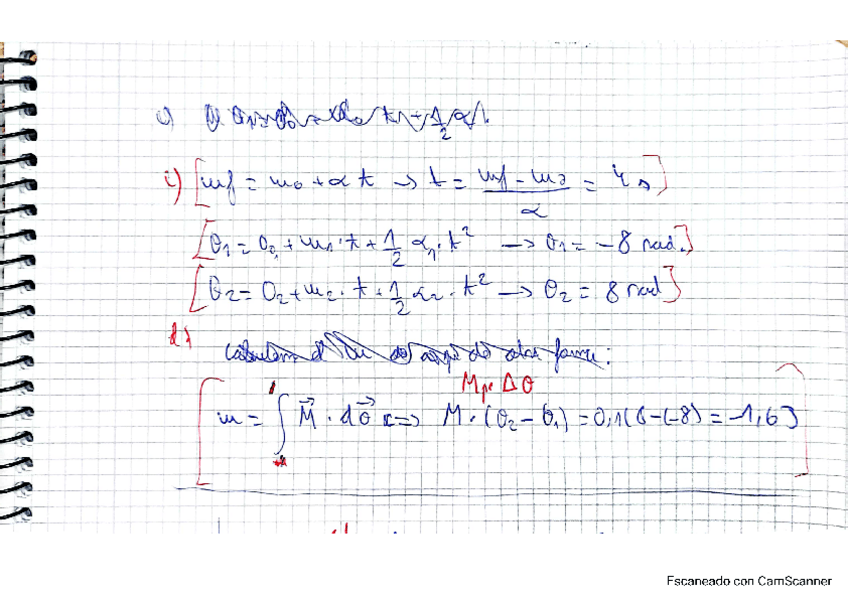 c)
c) [ωf = ω0 + α t → t = ωf - ω0 / α = 4 s]
[θ1 = θ0 + ω1 · t + 1/2 α1 · t² → θ1 = -8 rad.]
[θ2 = θ2 + ω2 · t + 1/2 α2 · t² → θ2 = 8 rad]
d)
M_FR Δθ
[w = ∫ M⃗ · dθ⃗ => M · (θ2 - θ1) = 0,1(8-(-8) = -1,6 J]
Escaneado con CamScanner